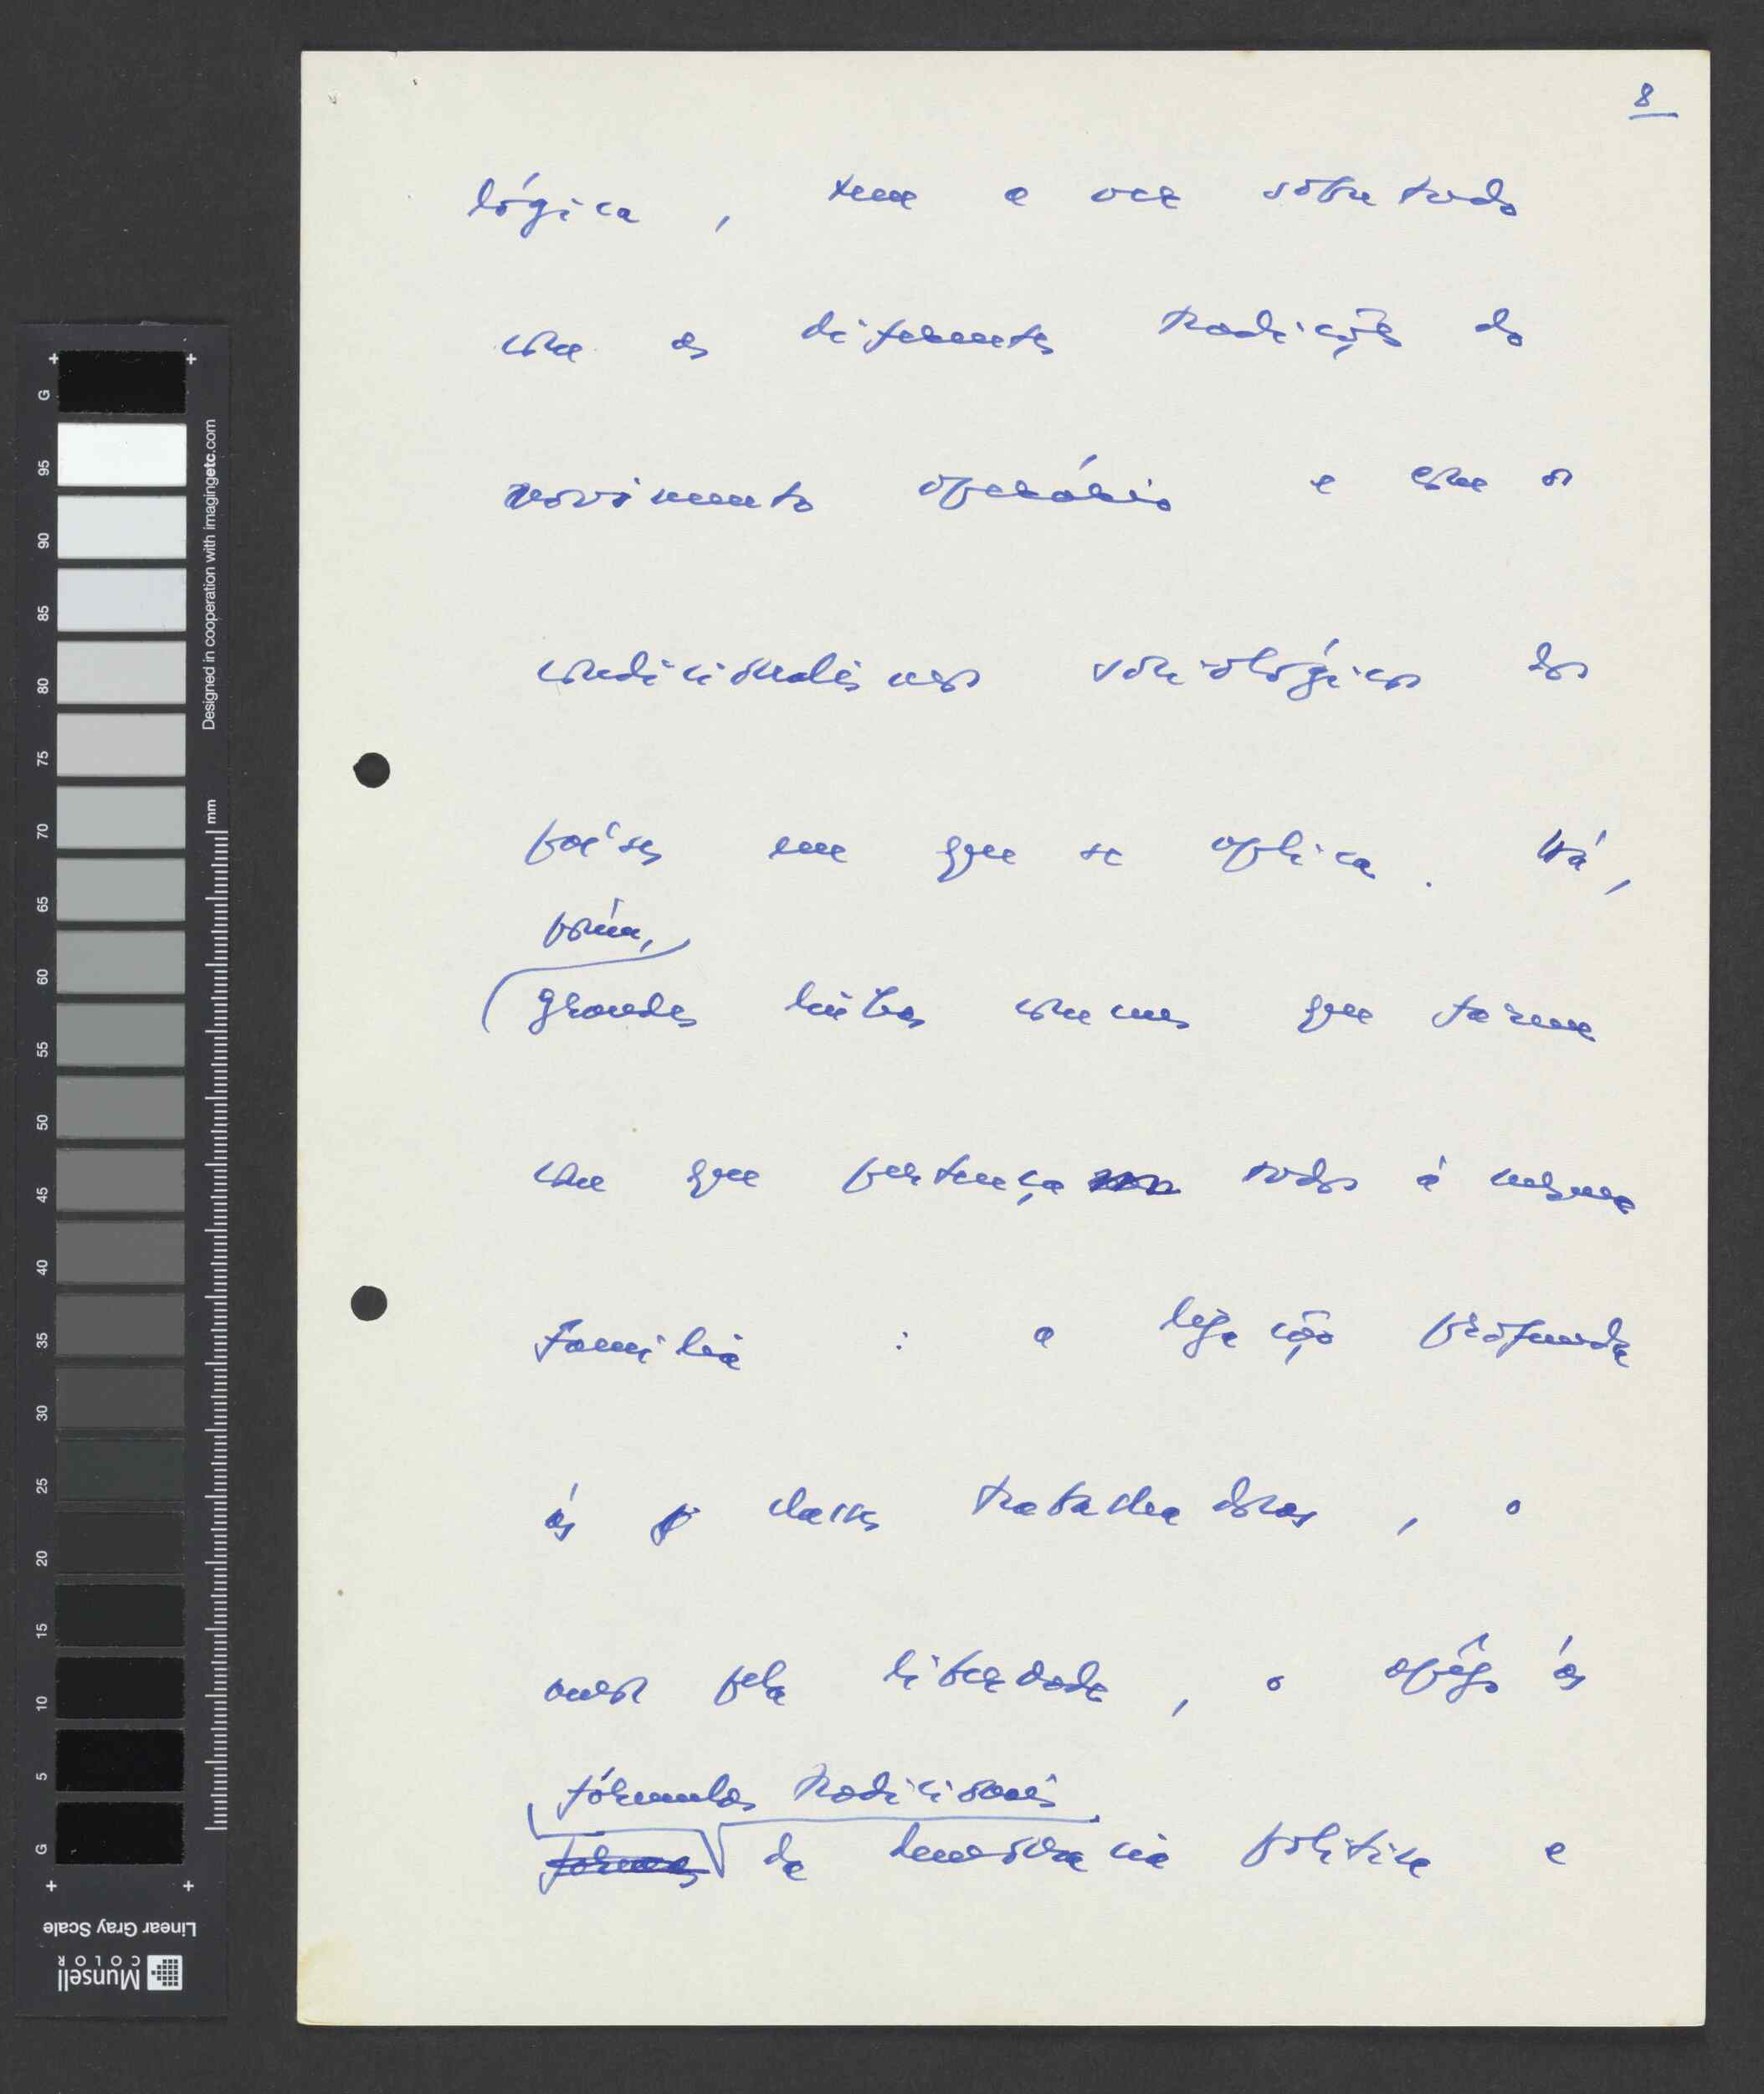 8
lógica, tem a ver sobretudo
com as diferentes tradições do
movimento operário e com os
condicionalismos sociológicos dos
países em que se aplica. Há,
porém,
grandes linhas comuns que fazem
com que pertença todos à mesma
família : a ligação profunda
às classes trabalhadoras, o
amor pela liberdade, o apêgo às
fórmulas tradicionais
formas da democracia política e
G
95
90
85
80
75
70
65
60
55
50
45
40
35
30
25
20
15
10
5
G
mm
Designed in cooperation with imagingetc.com
Linear Gray Scale
Munsell
COLOR